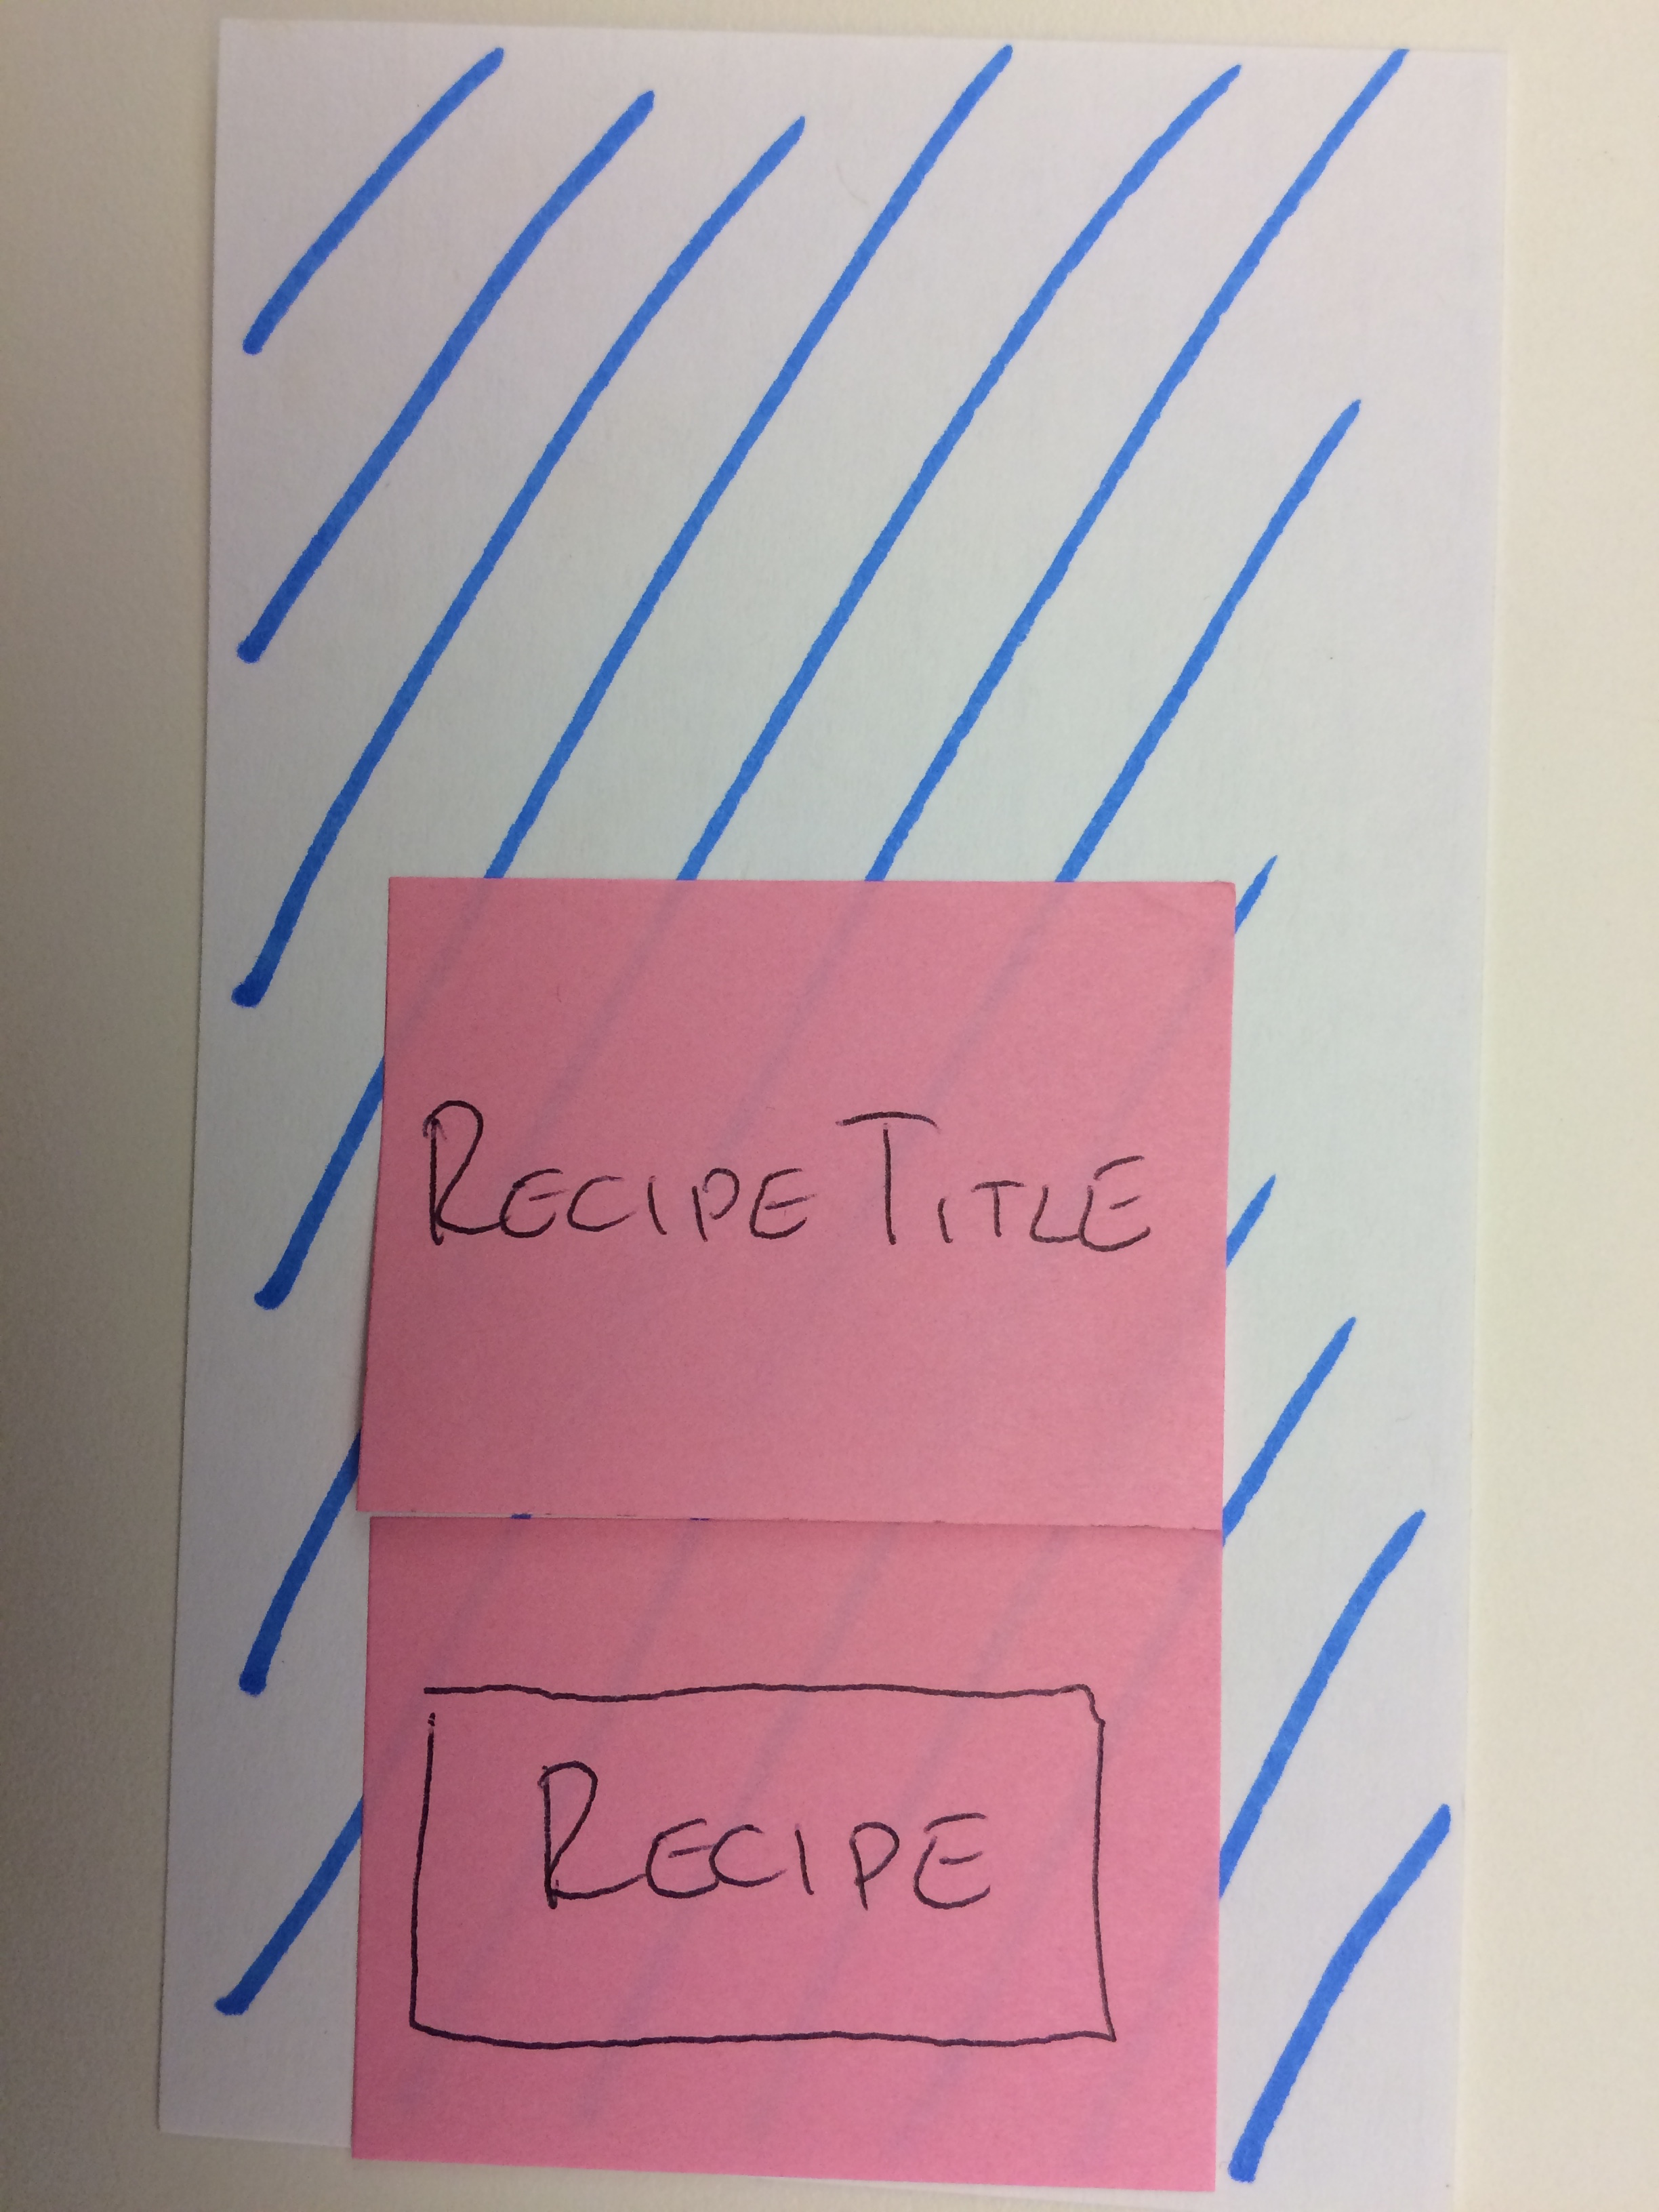 RECIPE TITLE
RECIPE